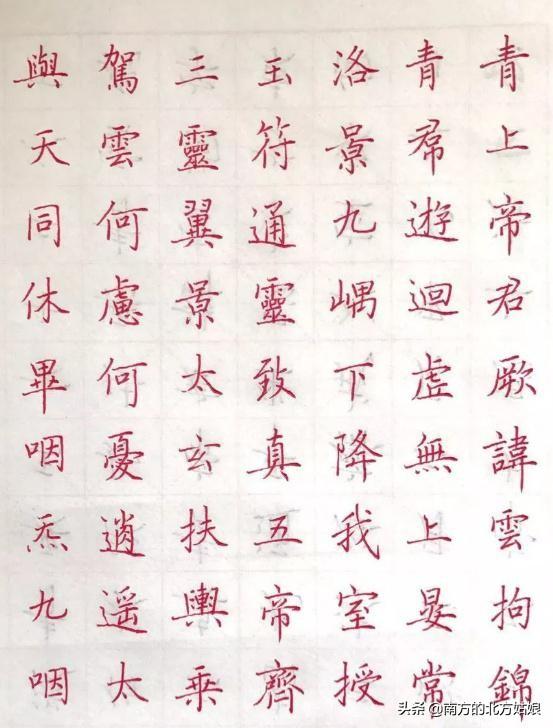 青上帝君厥諱雲拘錦
青帬遊迴虛無上晏常
洛景九嵎下降我室授
玉符通靈致真五帝齊
三靈翼景太玄扶轝乘
駕雲何慮何憂逍遥太
與天同休畢咽炁九咽
头条 @南方的北方姑娘